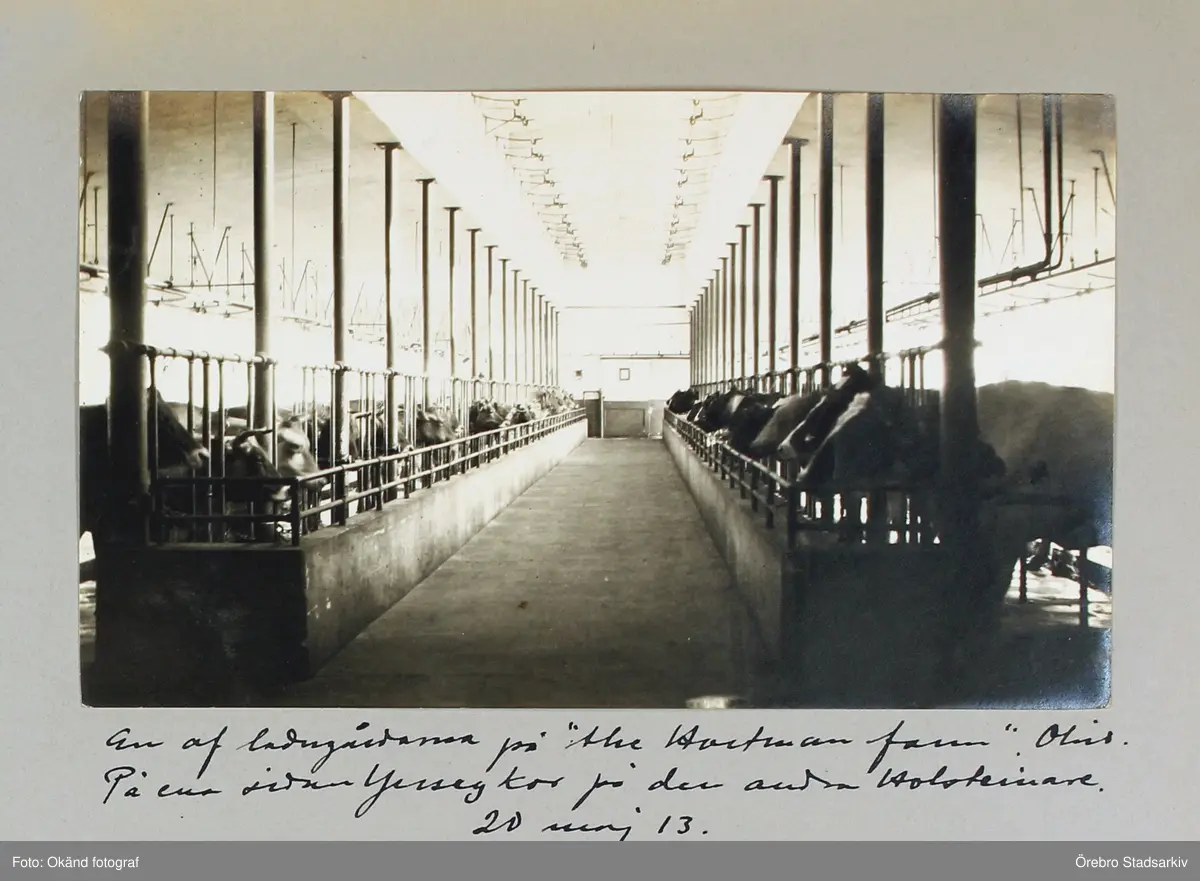 En af ladugårdarna på "the Hartman farm", Ohio.
På ena sidan Yersey kor på den andra Holsteinare.
20 maj 13.
Foto: Okänd fotograf
Örebro Stadsarkiv